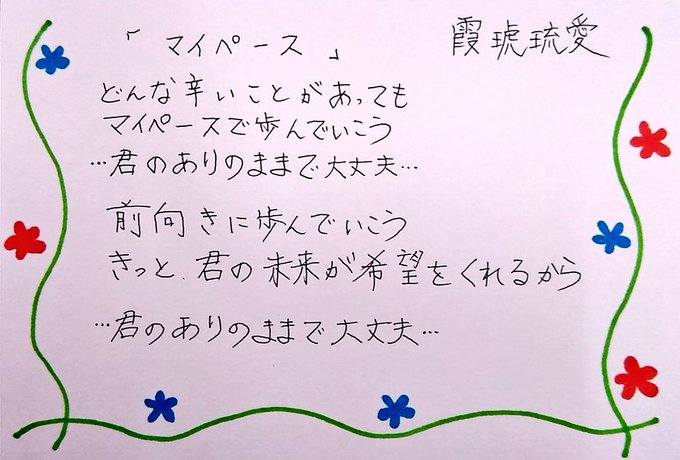 「マイペース」 霞琥琉愛
どんな辛いことがあっても
マイペースで歩んでいこう
…君のありのままで大丈夫…
前向きに歩んでいこう
きっと、君の未来が希望をくれるから
…君のありのままで大丈夫…